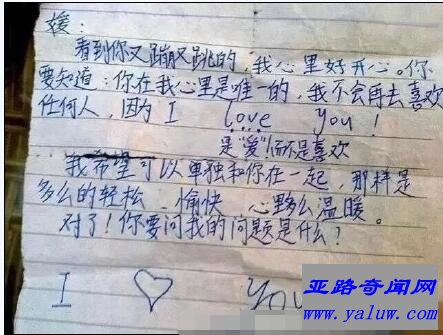 媛:
看到你又蹦又跳的,我心里好开心。你
要知道:你在我心里是唯一的,我不会再去喜欢
任何人,因为I love you!
是"爱"!而不是喜欢
我希望可以单独和你在一起,那样是
多么的轻松、愉快 心多么温暖。
对了!你要问我的问题是什么?
I ♡ You
亚路奇闻网
www.yaluw.com